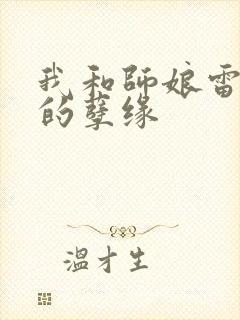 我和師娘雷
的孽缘
溫才生